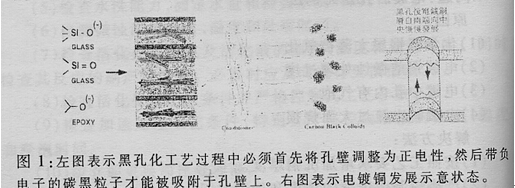 SI - O(-)
GLASS
SI = O
GLASS
O(-)
EPOXY
Carbon Black Colloids
黑孔後電鍍銅
層自兩端向中
央慢慢發展
图 1:左图表示黑孔化工艺过程中必须首先将孔壁调整为正电性，然后带负
电子的碳黑粒子才能被吸附于孔壁上。右图表示电镀铜发展示意状态。